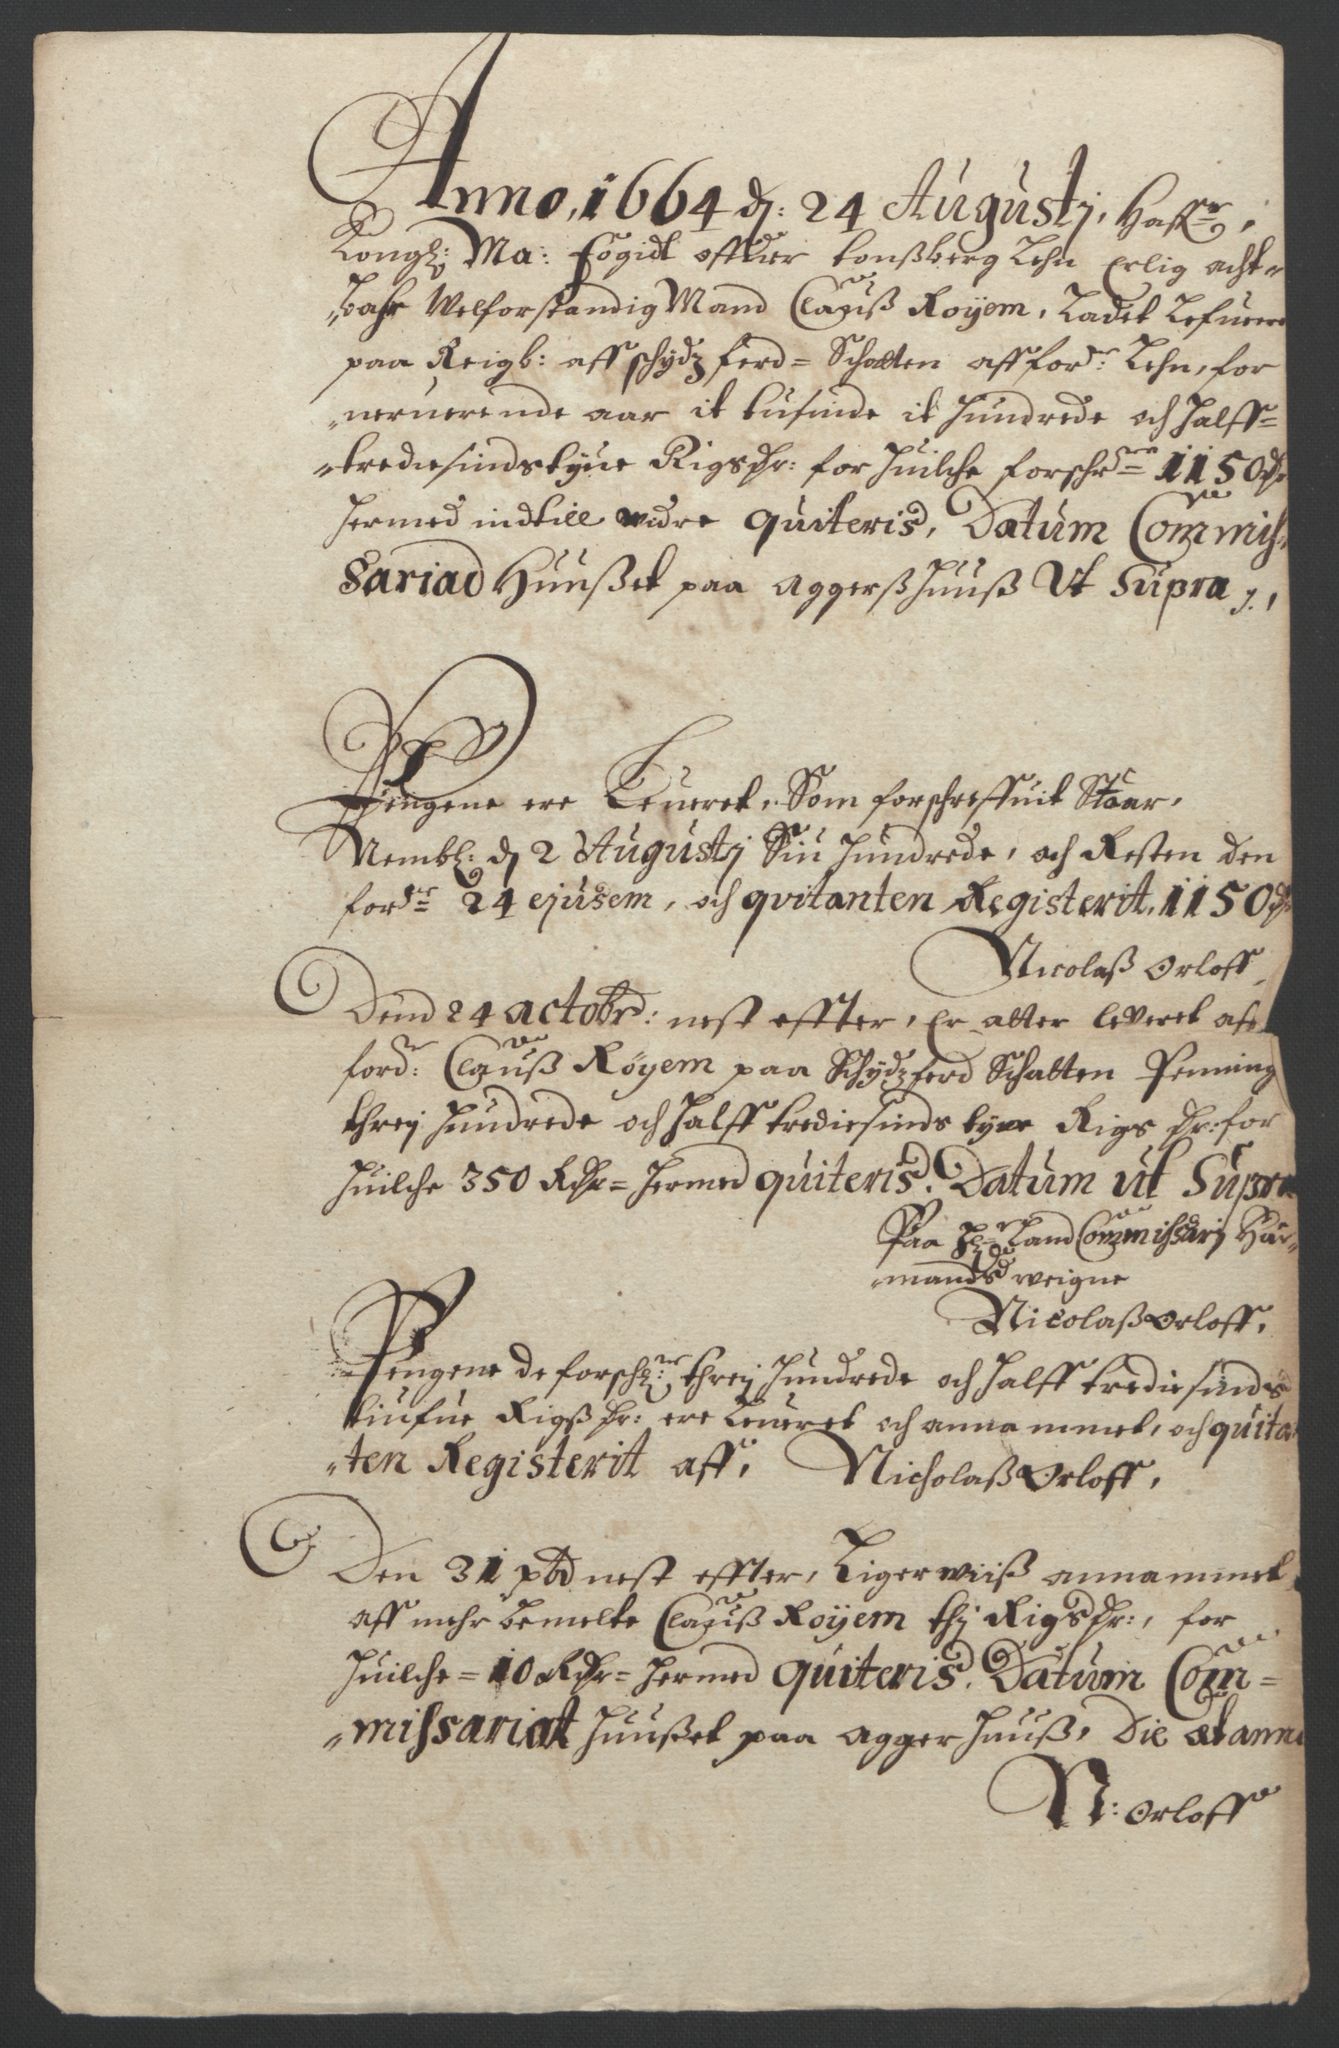 Anno, 1664 dj: 24 Augustj, Haffr,
Kongl: Ma: Fogidt offuer tonßberg Lehn Erlig acht-
"bahr Welforstandig Mand Clauß Royem, Ladet Lefuere
paa Reigb: aff schydz ferd = Schatten aff ford: Lehn, for
"neruerende aar it tusinde it hundrede och halff=
"trediesindstyue Rigsdr: for huilche forschrne 1150 dr
hermed indtill widre quiteris, Datum Commis-
sariad Huußet paa Aggerßhuuß Ut Supra j.,
Pengene ere Leueret, Som forschreffuit Staar,
Nembl: dj 2 Augustj Siu hundrede, och Resten den
fordr 24 ejusem, och qvitanten Registerit, 1150 dr
Nicolaß Orloff,
Dend 24 actobrd: nest effter, Er atter leveret aff
ford: Clauß Röyem paa Schydzferd Schatten Penning
threj hundrede och halff trediesinds tyue Rigs dr: for
huilche 350 Rdr = hermed quiteris, Datum ut Supra
Paa Hr Land Commissarj Har-
"mands weigne
Nicolaß Orloff,
Pengene de forschr: threj hundrede och halff trediesinds
tiufue Rigßdr: ere Leueret och annammet, och quita
"ten Registerit aff, Nicholaß Orloff,
Den 31 xbr nest effter, Ligerwiiß annammet
aff mehrbemelte Clauß Royem thj Rigsdr:, for
huilche = 10 Rdr = hermed quiteris, Datum Com=
"missariat huußet paa Aggerhuuß, Die et anno
N: Orloff